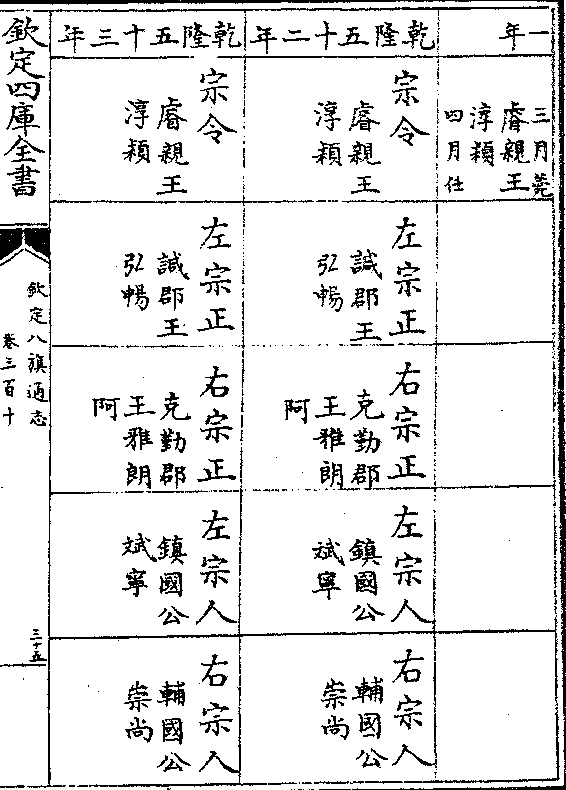 一年
三月薨
睿親王
淳穎
四月任
乾隆五十二年
宗令
睿親王
淳穎
左宗正
誠郡王
弘暢
右宗正
克勤郡
王雅朗
阿
左宗人
鎮國公
斌寧
右宗人
輔國公
崇尚
乾隆五十三年
宗令
睿親王
淳穎
左宗正
誠郡王
弘暢
右宗正
克勤郡
王雅朗
阿
左宗人
鎮國公
斌寧
右宗人
輔國公
崇尚
欽定四庫全書
欽定八旗通志
卷三百十
三十五